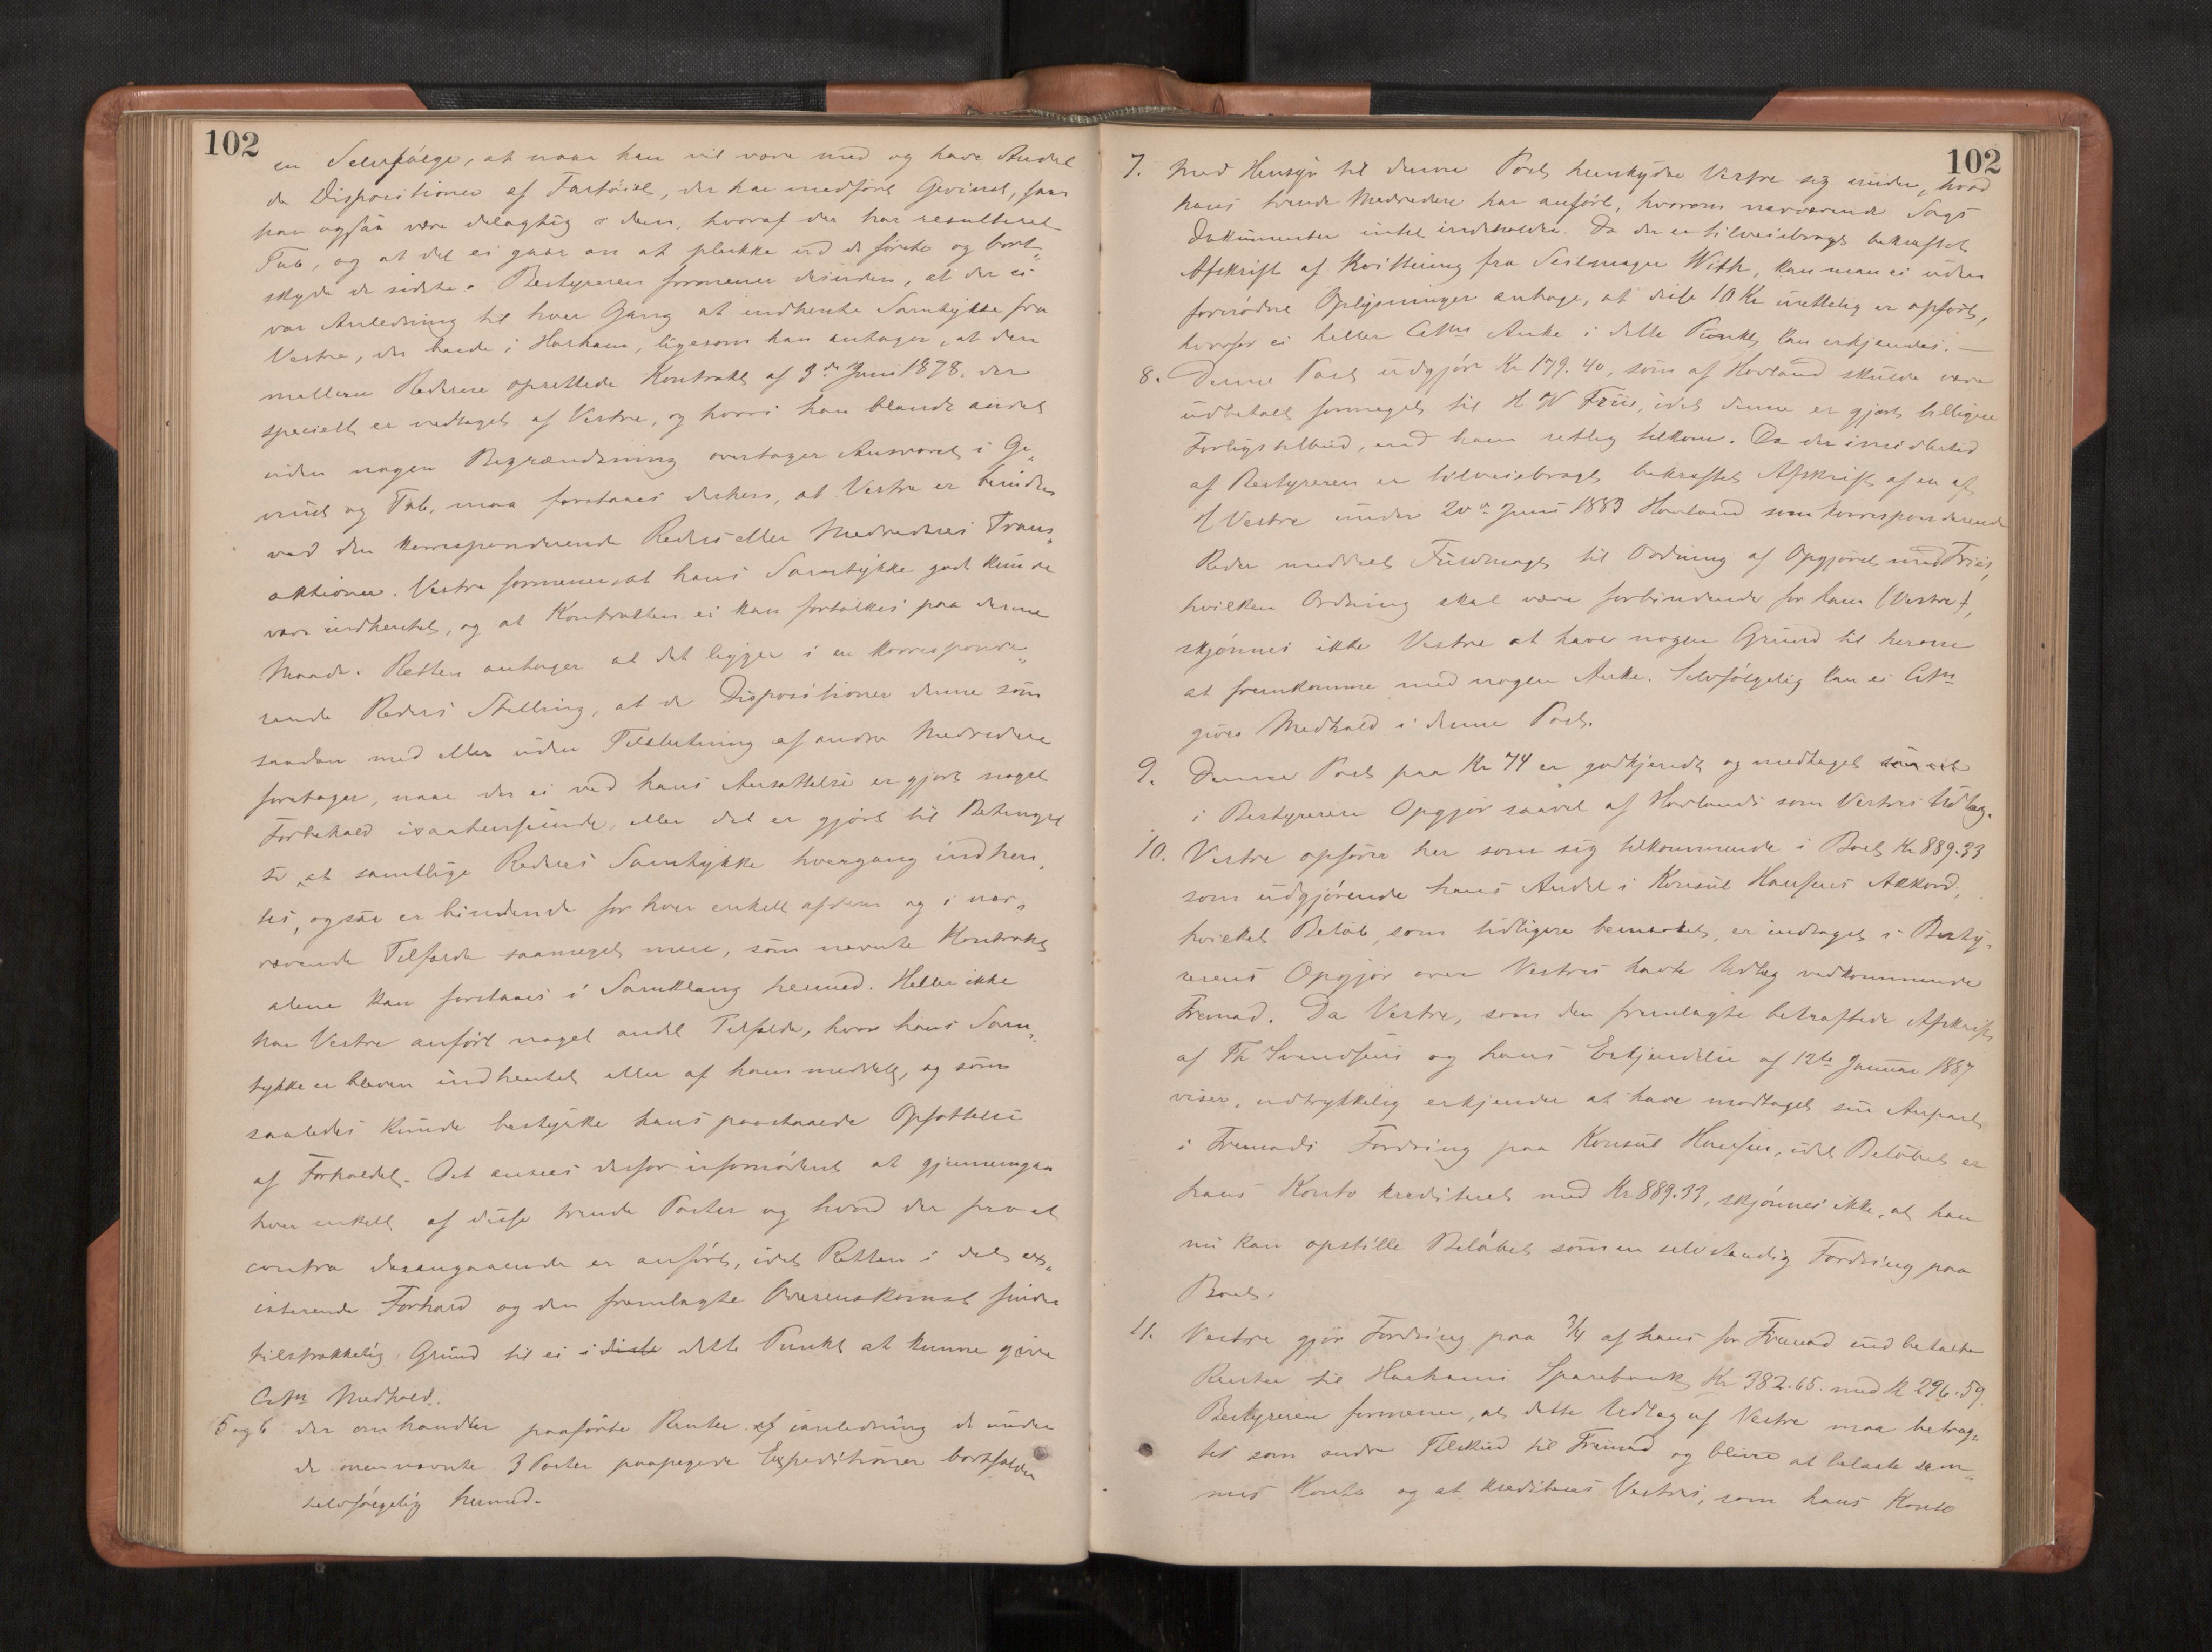 102
en Selvfølge, at naar han vil være med og have Andel
de Dispositioner af Fartøiet, der har medført Gevinst, faar
han ogsaa være delagtig i dem, hvoraf der har resulteret
Tab, og at det ei gaar an at plukke ud de første og bort„
skyde de sidste. Bestyreren formener desuden, at der ei
var Anledning til hver Gang at indhente Samtykke fra
Vestre, der boede i Harham, ligesom han antager, at den
mellem Rederne oprettede Kontrakt af 3de Juni 1878, der
specielt er vedtaget af Vestre, og hvori han blandt andet
uden nogen Begrændsning overtager Ansvaret i Ge„
vinst og Tab, maa forstaaes derhen, at Vestre er bunden
ved den korresponderende Reders eller Medrederes Trans„
aktioner. Vestre formener, at hans Samtykke godt kunde
være indhentet, og at Kontrakten ei kan fortolkes paa denne
Maade. Retten antager at det ligger i en korresponde„
rende Reders Stilling, at de Dispositioner denne som
saadan med eller uden Tilslutning af andre Medredere
foretager, naar der ei ved hans Ansættelse er gjort noget
Forbehold isaahenseende, eller det er gjort til Betingel
se at samtlige Rederes Samtykke hvergang indhen„
tes, ogsaa er bindende for hver enkelt af dem og i nær„
værende Tilfælde saameget mere, som nævnte Kontrakt
alene kan forstaaes i Samklang hermed. Heller ikke
har Vestre anført noget andet Tilfælde, hvor hans Sam„
tykke er bleven indhentet eller af ham meddelt, og som
saaledes kunde bestyrke hans paastaaede Opfattelse
af Forholdet. Det ansees derfor ufornødent at gjennemgaa
hver enkelt af disse trende Poster og hvad der pro et
contra desangaaende er anført, idet Retten i det ex„
isterende Forhold og den fremlagte Overenskomst finder
tilstrækkelig Grund til ei i disse dette Punkt at kunne give
Citm Medhold.
5 og 6 der omhandler paaførte Renter af ianledning de under
de ovennævnte 3 Poster paapegede Expeditioner bortfalder
selvfølgelig hermed.
102
7. Med Hensyn til denne Post henskyder Vestre sig under, hvad
hans trende Medredere har anført, hvorom nærværende Sags
Dokumenter intet indeholder. Da der er tilveiebragt bekræftet
Afskrift af Kvittering fra Seilmager With, kan man ei uden
fornødne Oplysninger antage, at disse 10 Kr urettelig er opført,
hvorfor ei heller Citms Anke i dette Punkt kan erkjendes. —
8. Denne Post udgjør Kr 179.40, som af Hovland skulde være
udbetalt formeget til H W Friis, idet denne er gjort billigere
Forligstilbud, end ham retlig tilkom. Da der imidlertid
af Bestyreren er tilveiebragt bekræftet Afskrift af en af
H Vestre under 20de Juni 1883 Hovland som korresponderende
Reder meddelt Fuldmagt til Ordning af Opgjøret med Friis,
hvilken Ordning skal være forbindende for ham (Vestre),
skjønnes ikke Vestre at have nogen Grund til herom
at fremkomme med nogen Anke. Selvfølgelig kan ei Citm
gives Medhold i denne Post.
9. Denne Post paa Kr 74 er godkjendt og medtaget
i Bestyrerens Opgjør saavel af Hovlands som Vestres Udlæg.
10. Vestre opfører her som sig tilkommende i Boet Kr 889.33
som udgjørende hans Andel i Konsul Hansens Akkord,
hvilket Beløb, som tidligere bemerket, er indtaget i Besty„
rerens Opgjør over Vestres havte Udlæg vedkommende
Fremad. Da Vestre, som den fremlagte bekræftede Afskrift
af Th Svendsens og hans Erkjendelse af 12te Januar 1887
viser, udtrykkelig erkjender at have modtaget sin Anpart
i Fremads Fordring paa Konsul Hansen, idet Beløbet er
hans Konto krediteret med Kr 889.33, skjønnes ikke, at han
nu kan opstille Beløbet som en selvstændig Fordring paa
Boet.
11. Vestre gjør Fordring paa 3/4 af hans for Fremad udbetalte
Renter til Harhams Sparebank Kr 382.65. med Kr 296.59.
Bestyreren formener, at dette Udlæg af Vestre maa betrag„
tes som andre Tilskud til Fremad og blive at belaste sam„
mes Konto og at krediteres Vestres, som hans Konto